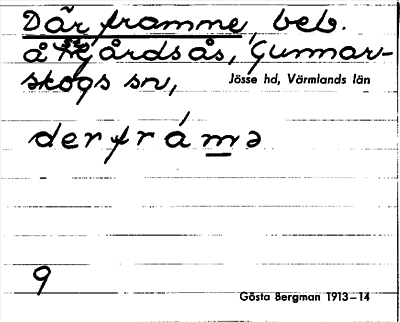 Där framme, beb.
å Gårdsås, Gunnar-
skogs sn, Jösse hd, Värmlands län
derfrámə
9
Gösta Bergman 1913–14